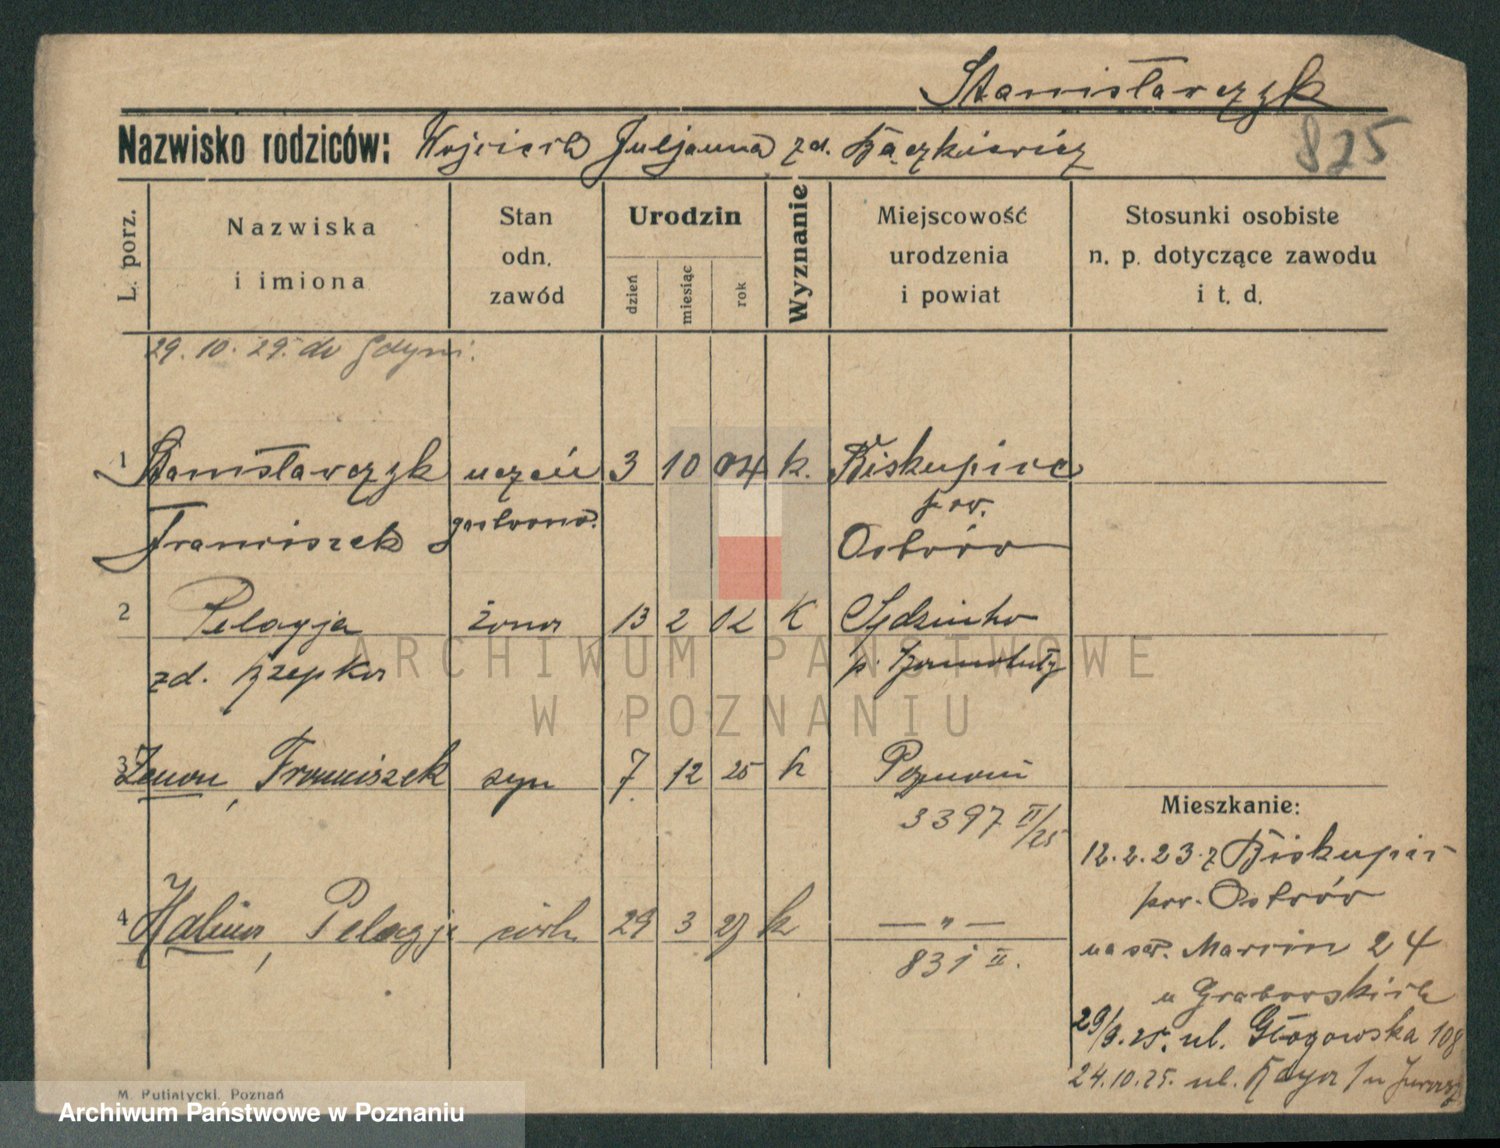 Stanisławczyk
Nazwisko rodziców: Wojciech Juljanna zd. Kączkiewicz
825
L. porz.
Nazwiska i imiona
Stan odn. zawód
Urodzin
dzień miesiąc rok
Wyznanie
Miejscowość urodzenia i powiat
Stosunki osobiste n. p. dotyczące zawodu i t. d.
29. 10. 29. do Gdyni.
1 Stanisławczyk uczeń 3 10 04 k. Biskupice
Franciszek gastronom. pow.
Ostrów
2 Pelagja żona 13 2 02 K Sędzinko
zd. Rzepka p. Szamotuły
ARCHIWUM PAŃSTWOWE
W POZNANIU
3 Zenon, Franciszek syn 7 12 25 k Poznań
3397 II/25
Mieszkanie:
12.2.23 z Biskupic
pow. Ostrów
4 Halina, Pelagja córk 29 3 27 k — „ —
831 II.
na św. Marcin 24
u Grabowskich
29/9.25. ul. Głogowska 108
24.10.25. ul.
M. Putiatycki, Poznań
Archiwum Państwowe w Poznaniu